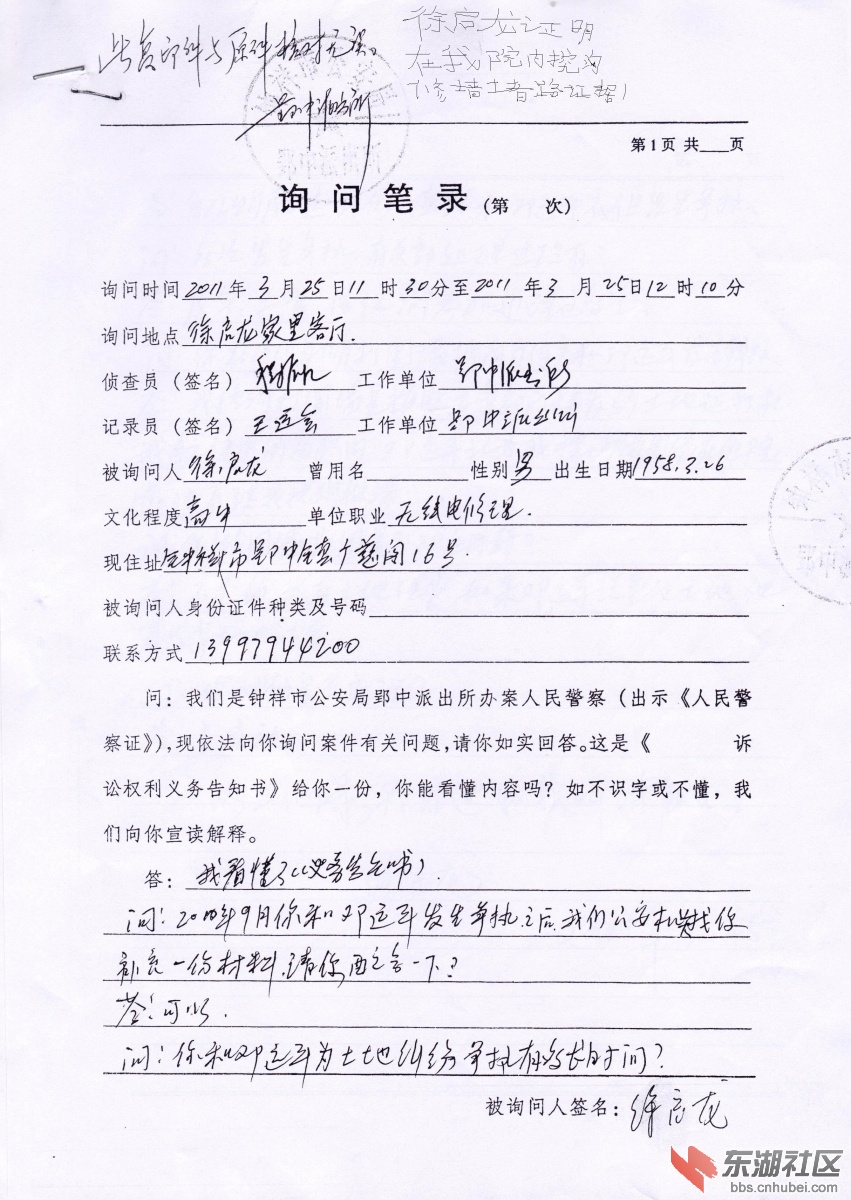 此复印件与原件核对无误。
徐启龙证明
在我院内挖沟
第1页 共___页
询问笔录(第 次)
询问时间2011年3月25日11时30分至2011年3月25日12时10分
询问地点 徐启龙家里客厅.
侦查员(签名) 工作单位 郢中派出所
记录员(签名) 工作单位 郢中派出所
被询问人 徐启龙 曾用名 性别 男 出生日期1958.3.26
文化程度 高中 单位职业 无线电修理.
现住址 钟祥市郢中镇 16号
被询问人身份证件种类及号码
联系方式 13997944200
问:我们是钟祥市公安局郢中派出所办案人民警察(出示《人民警
察证》),现依法向你询问案件有关问题,请你如实回答。这是《 诉
讼权利义务告知书》给你一份,你能看懂内容吗?如不识字或不懂,我
们向你宣读解释。
答: 我看懂了
问:20 年9月你和邓运 发生争执之后,我们公安机关找你
补充一份材料,请你配合一下?
答:可以.
问:你和邓运 为土地纠纷争执有多长时间?
被询问人签名:徐启龙
东湖社区
bbs.cnhubei.com